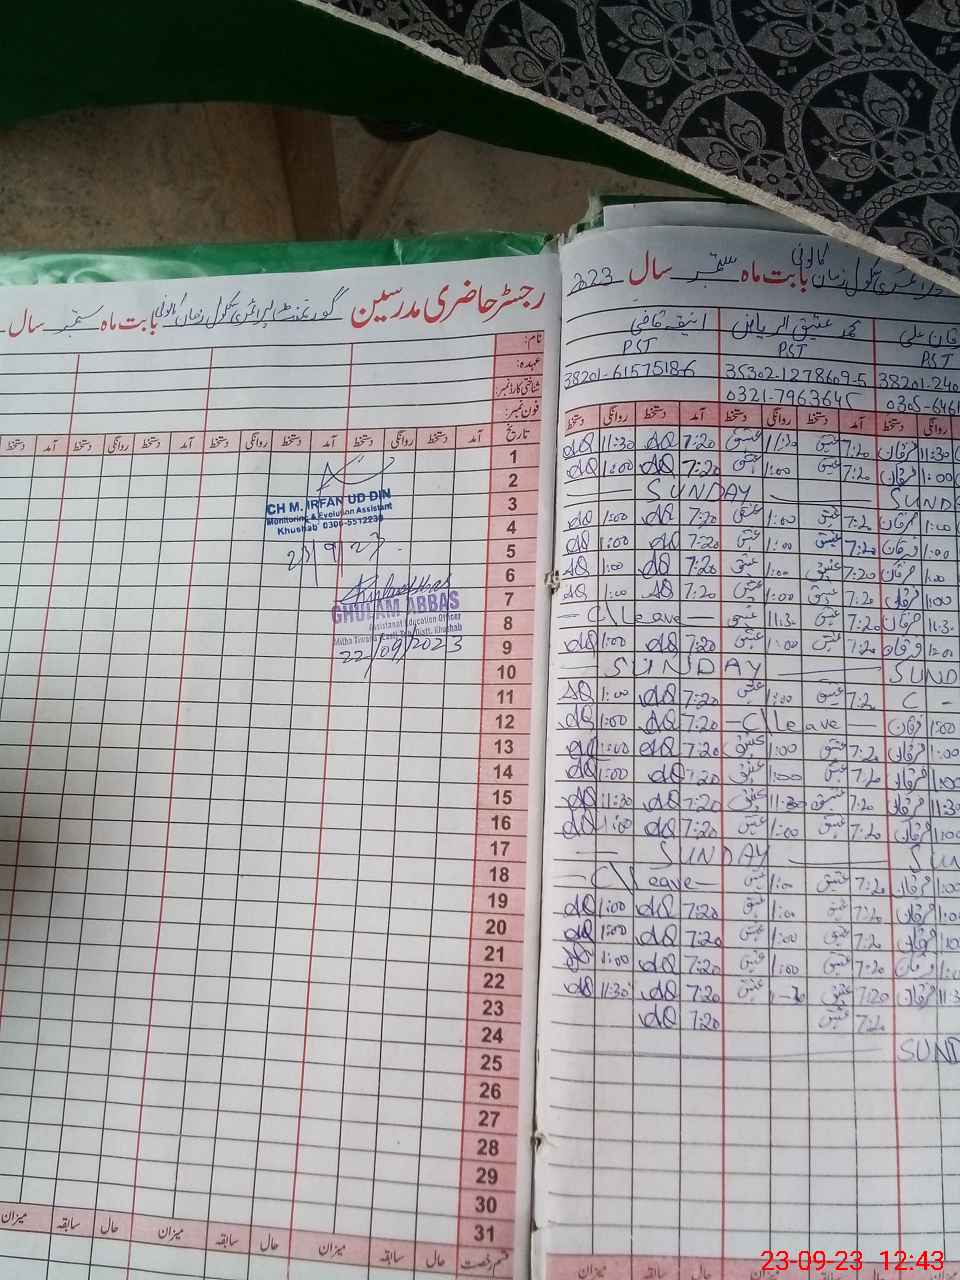 رجسٹر حاضری مدرسین گورنمنٹ پرائمری سکول زمان کالونی بابت ماہ ستمبر سال
نام:
عہدہ:
شناختی کارڈ نمبر:
فون نمبر:
تاریخ آمد دستخط روانگی دستخط آمد دستخط روانگی دستخط آمد دستخط روانگی دستخط آمد دستخط
1
2
3
4
5
6
7
8
9
10
11
12
13
14
15
16
17
18
19
20
21
22
23
24
25
26
27
28
29
30
31
قسم رخصت حال سابقہ میزان حال سابقہ میزان حال سابقہ میزان
CH M. IRFAN UD DIN
Monitoring & Evolution Assistant
Khushab 0306-5512230
GHULAM ABBAS
Assistanat Education Officer
22/09/2023
پرائمری سکول زمان کالونی بابت ماہ ستمبر سال 2023
محمد عتیق الریاض انیقہ قاضی
PST PST PST
38201-240 35302-1278609-5 38201-6157518-6
0305-6461 0321-7963645
روانگی دستخط آمد دستخط روانگی دستخط آمد دستخط روانگی دستخط
11:30 فرقان 7:20 عتیق 11:30 عتیق 7:20 AQ 11:30 AQ
1:00 فرقان 7:20 عتیق 1:00 عتیق 7:20 AQ 1:00 AQ
SUNDAY SUNDA
1:00 فرقان 7:20 عتیق 1:00 عتیق 7:20 AQ 1:00 AQ
1:00 فرقان 7:20 عتیق 1:00 عتیق 7:20 AQ 1:00 AQ
1:00 فرقان 7:20 عتیق 1:00 عتیق 7:20 AQ 1:00 AQ
1:00 فرقان 7:20 عتیق 1:00 عتیق 7:20 AQ 1:00 AQ
11:30 فرقان 7:20 عتیق 11:30 عتیق C\leave
1:00 فرقان 7:20 عتیق 1:00 عتیق 7:20 AQ 1:00 AQ
SUNDAY SUND
C - 7:20 عتیق 1:00 عتیق 7:20 AQ 1:00 AQ
1:00 فرقان C\leave 7:20 AQ 1:00 AQ
1:00 فرقان 7:20 عتیق 1:00 عتیق 7:20 AQ 1:00 AQ
1:00 فرقان 7:20 عتیق 1:00 عتیق 7:20 AQ 1:00 AQ
11:30 فرقان 7:20 عتیق 11:30 عتیق 7:20 AQ 11:30 AQ
1:00 فرقان 7:20 عتیق 1:00 عتیق 7:20 AQ 1:00 AQ
SUNDAY SUN
1:00 فرقان 7:20 عتیق 1:00 عتیق C\leave
1:00 فرقان 7:20 عتیق 1:00 عتیق 7:20 AQ 1:00 AQ
1:00 فرقان 7:20 عتیق 1:00 عتیق 7:20 AQ 1:00 AQ
1:00 فرقان 7:20 عتیق 1:00 عتیق 7:20 AQ 1:00 AQ
11:3 فرقان 7:20 عتیق عتیق 7:20 AQ 11:30 AQ
7:20 عتیق 7:20 AQ
SUND
میزان حال سابقہ میزان
23-09-23 12:43